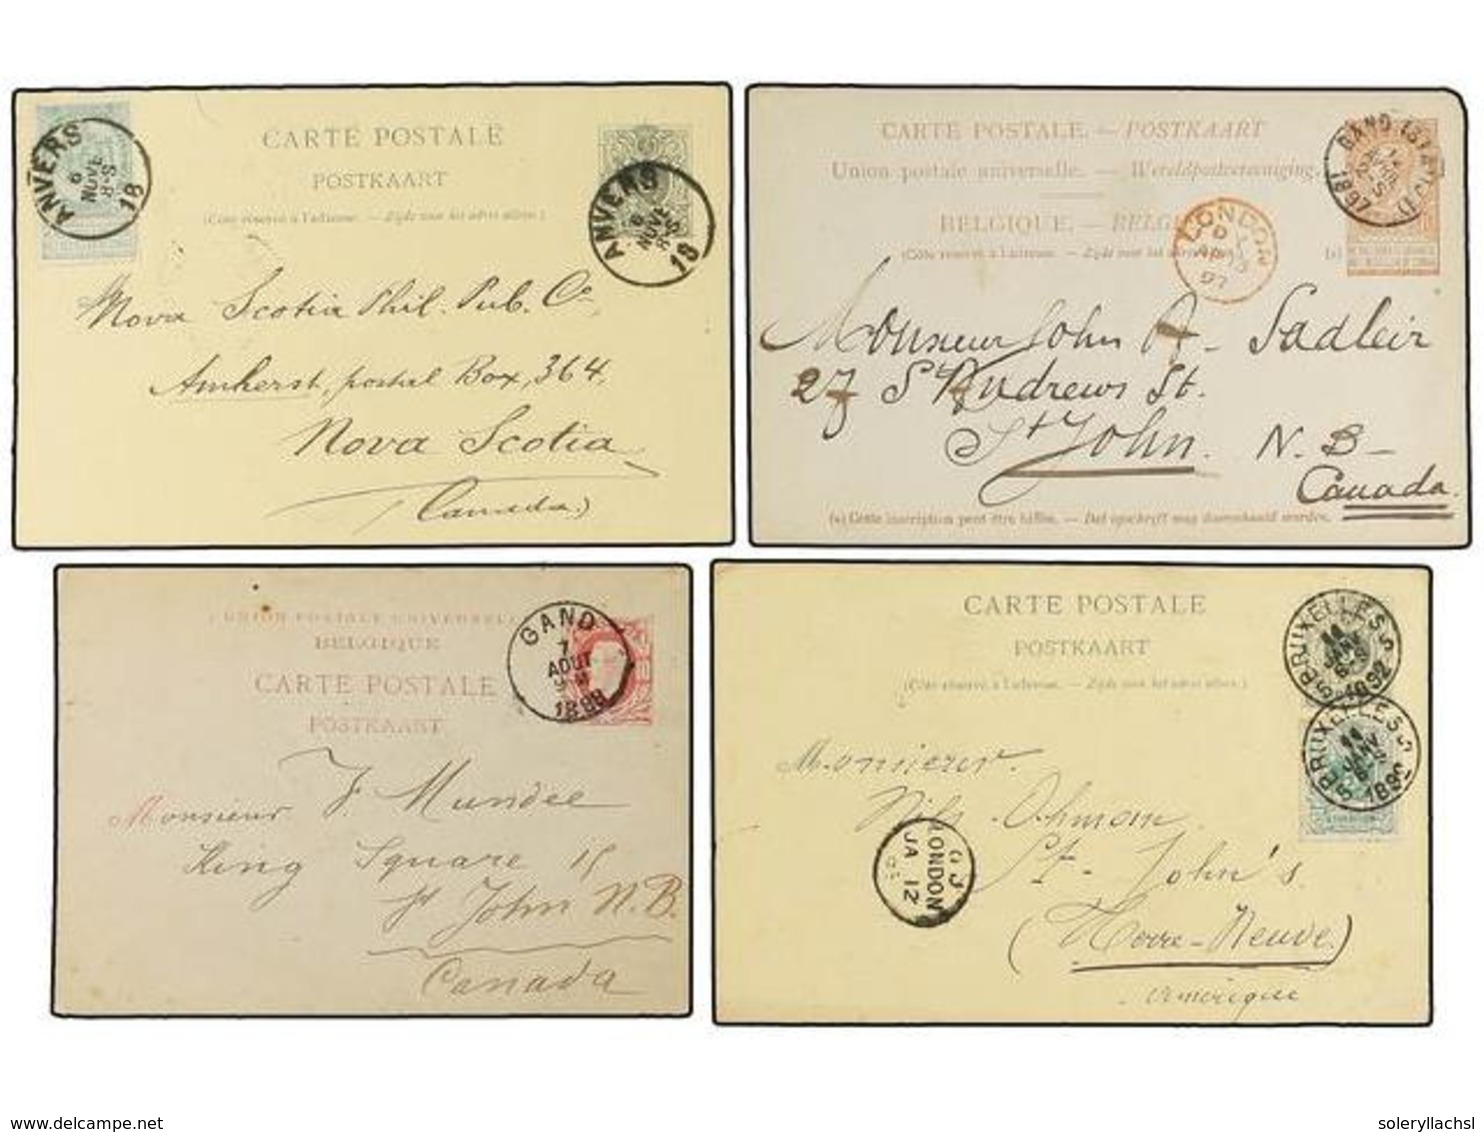 ANVERS
6
NOVE
8-S
18
CARTE POSTALE
POSTKAART
(Côté réservé à l'adresse. — Zijde voor het adres alleen.)
ANVERS
6
NOVE
8-S
18
Nova Scotia Phil. Pub. Co
Amherst, postal Box, 364,
Nova Scotia
(Canada.)
CARTE POSTALE. — POSTKAART
Union postale universelle. — Wereldpostvereeniging.
BELGIQUE. — BELG
(Côté réservé à l'adresse. — Zijde voor het
GAND
1897
LONDON
AP
97
Monsieur John A. Sadleir
27 St Andrews St.
St John. N. B —
Canada.
(*) Cette inscription peut être biffée. — Dat opschrift mag doorschrabd worden.
UNION POSTALE UNIVERSELLE
BELGIQUE
CARTE POSTALE
POSTKAART
GAND
7
AOUT
9-M
1888
Monsieur F. Mundee
King Square 15
St John N.B.
Canada
CARTE POSTALE
POSTKAART
(Côté réservé à l'adresse. — Zijde voor het adres alleen.)
BRUXELLES 5
11
JANV
1892
BRUXELLES 5
11
JANV
1892
Monsieur
Nils Ohman
St. John's
(Terre-Neuve)
Amérique
LONDON
JA 12
delcampe.net
soleryllachsl